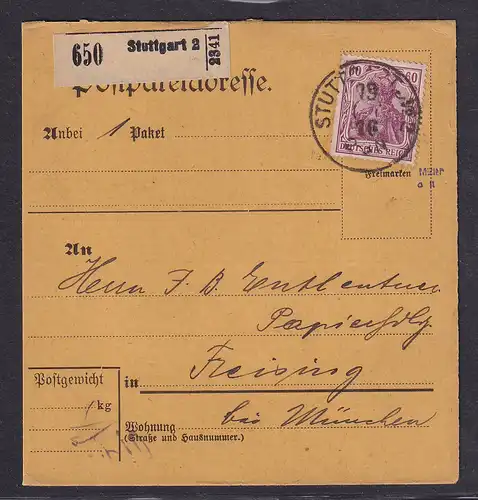 650 Stuttgart 2 2341
Postpaketadresse.
60 60
STUTT
19
16
DEUTSCHES REICH
Anbei 1 Paket
Freimarken
An
Herrn F. B.
Papierhdlg
Postgewicht
in Freising
kg
bei München
Wohnung
(Straße und Hausnummer.)